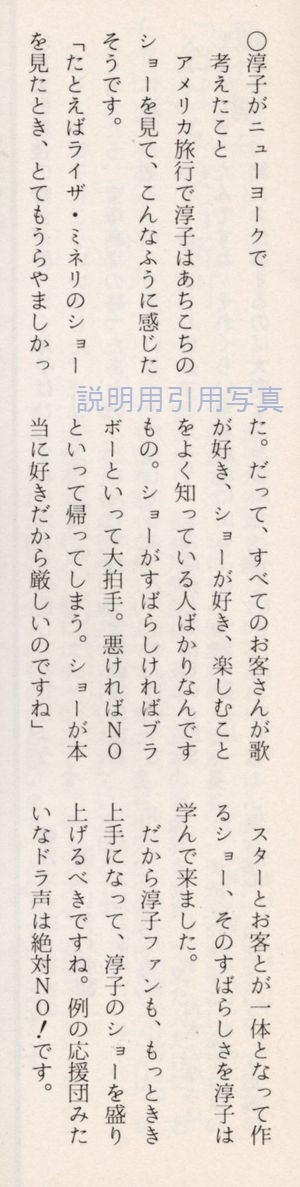 〇淳子がニューヨークで
考えたこと
アメリカ旅行で淳子はあちこちの
ショーを見て、こんなふうに感じた
そうです。
「たとえばライザ・ミネリのショー
を見たとき、とてもうらやましかっ
た。だって、すべてのお客さんが歌
が好き、ショーが好き、楽しむこと
をよく知っている人ばかりなんです
もの。ショーがすばらしければブラ
ボーといって大拍手。悪ければNO
といって帰ってしまう。ショーが本
当に好きだから厳しいのですね」
スターとお客とが一体となって作
るショー、そのすばらしさを淳子は
学んで来ました。
だから淳子ファンも、もっときき
上手になって、淳子のショーを盛り
上げるべきですね。例の応援団みた
いなドラ声は絶対NO!です。
説明用引用写真